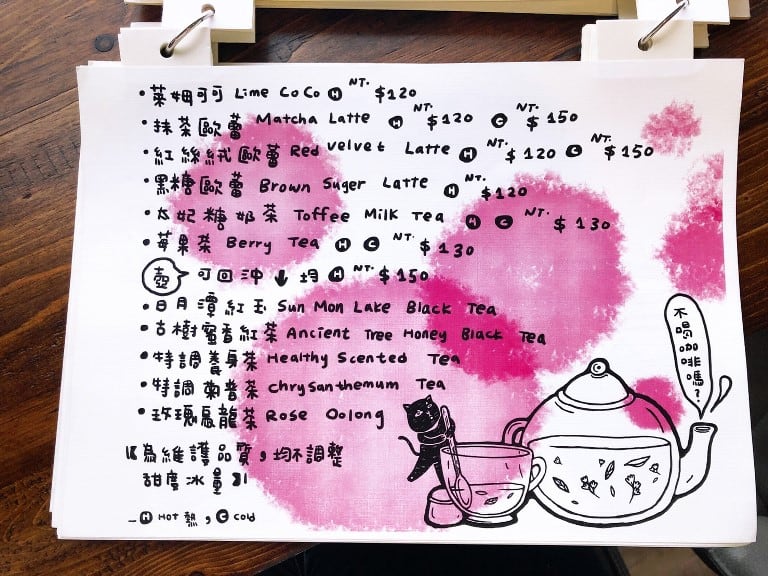 •萊姆可可 Lime CoCo Ⓗ NT. $120
•抹茶歐蕾 Matcha Latte Ⓗ NT. $120 Ⓒ NT. $150
•紅絲絨歐蕾 Red velvet Latte Ⓗ NT. $120 Ⓒ NT. $150
•黑糖歐蕾 Brown Suger Latte Ⓗ NT. $120
•太妃糖奶茶 Toffee Milk Tea Ⓗ Ⓒ NT. $130
•莓果茶 Berry Tea Ⓗ Ⓒ NT. $130
壺 可回沖⬇均Ⓗ NT. $150
•日月潭紅玉 Sun Mon Lake Black Tea
•古樹蜜香紅茶 Ancient Tree Honey Black Tea
•特調養身茶 Healthy Scented Tea
•特調菊普茶 chrysanthemum Tea
•玫瑰烏龍茶 Rose Oolong
【為維護品質,均不調整
甜度冰量】
-Ⓗ HOT 熱, Ⓒ Cold
不喝咖啡嗎?